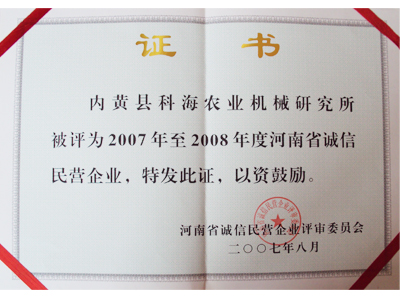 证书
内黄县科海农业机械研究所
被评为2007年至2008年度河南省诚信
民营企业，特发此证，以资鼓励。
河南省诚信民营企业评审委员会
二〇〇七年八月